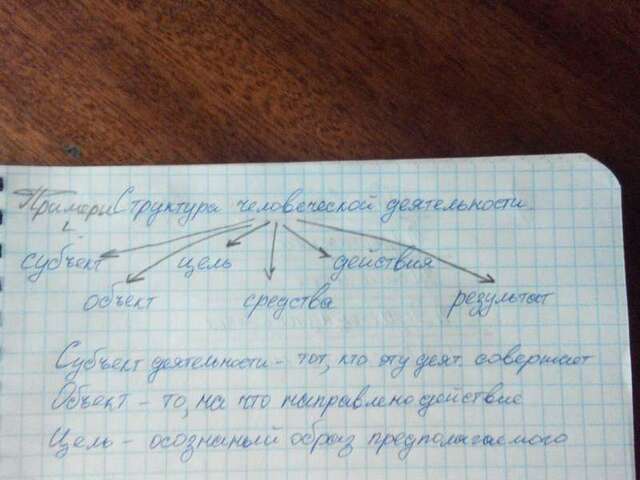 Примеры Структура человеческой деятельности
субъект цель действия
объект средства результат
Субъект деятельности - тот, кто эту деят. совершает
Объект - то, на что направлено действие
Цель - осознаный образ предполагаемого